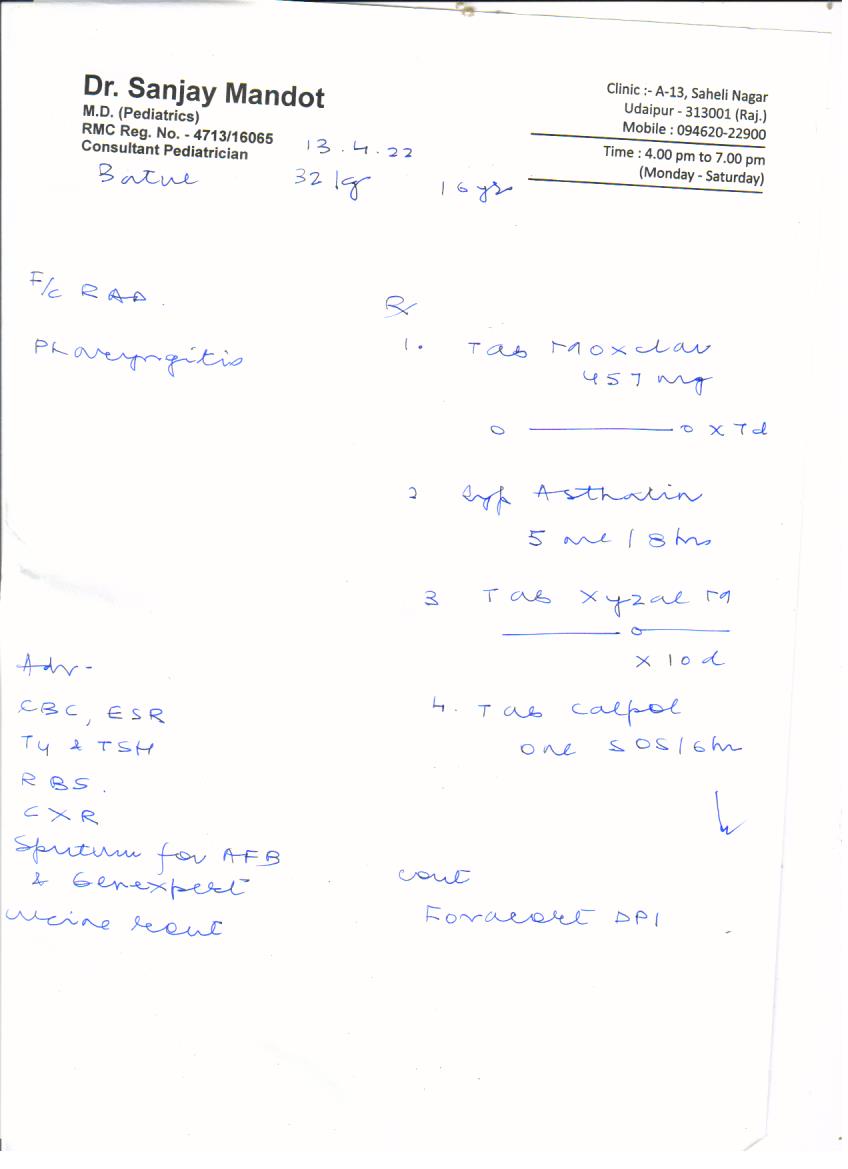 Dr. Sanjay Mandot
M.D. (Pediatrics)
RMC Reg. No. - 4713/16065
Consultant Pediatrician
Clinic :- A-13, Saheli Nagar
Udaipur - 313001 (Raj.)
Mobile : 094620-22900
Time : 4.00 pm to 7.00 pm
(Monday - Saturday)
13.4.22
32 kg 16 yrs
F/c RAD.
Pharyngitis
Rx
1. Tab Moxclav
457 mg
o — o x 7d
2 Syp Asthalin
5 ml / 8 hrs
3 Tab Xyzal M
— o —
x 10 d
4. Tab Calpol
one SOS/6hr
Adv -
CBC, ESR
T4 & TSH
RBS.
CXR
Sputum for AFB
& Genexpert
urine rout
cont
Foracort DPI